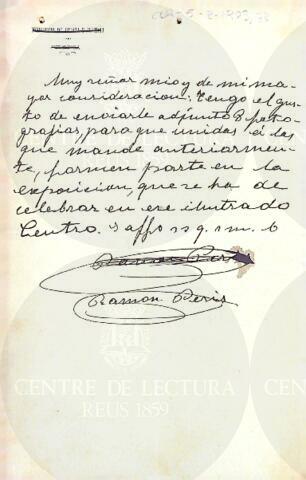 Muy señor mio y de mi ma
yor consideracion: Tengo el gus
to de enviarle adjunto 8 foto
grafias, para que unidas á las
que mandé anteriormen
te, formen parte en la
exposicion, que se ha de
celebrar en ese ilustrado
Centro. S affo s s q. s. m. b
Ramon Peris
Ramon Peris
CENTRE DE LECTURA
REUS 1859
CENTR